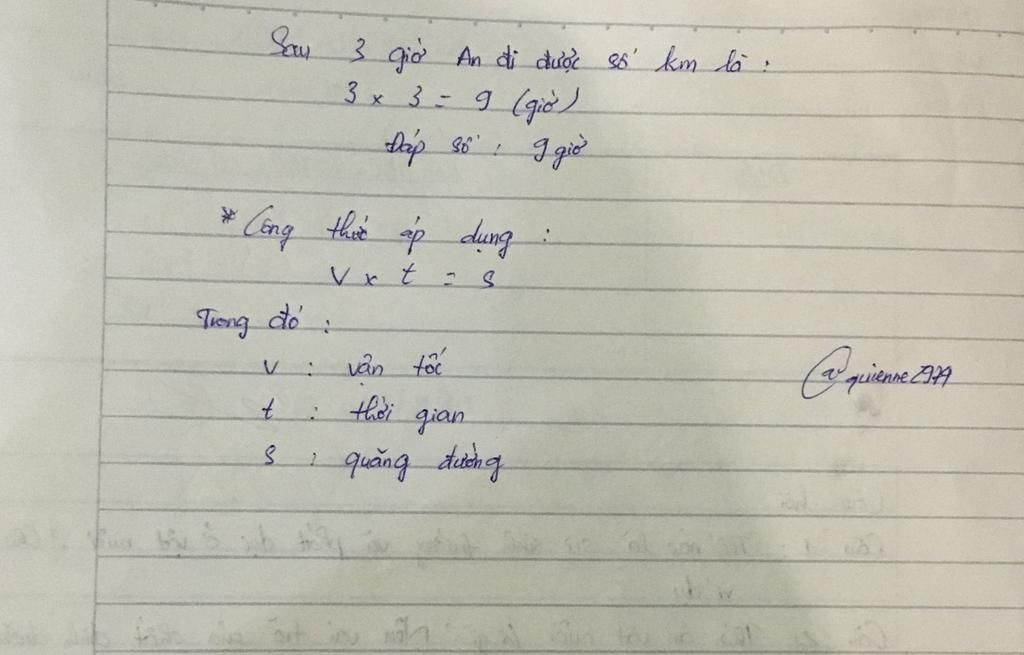 Sau 3 giờ An đi được số km là :
3 x 3 = 9 (giờ)
Đáp số : 9 giờ
* Công thức áp dụng :
v x t = s
Trong đó :
v : vận tốc
@quienne2979
t : thời gian
s : quãng đường